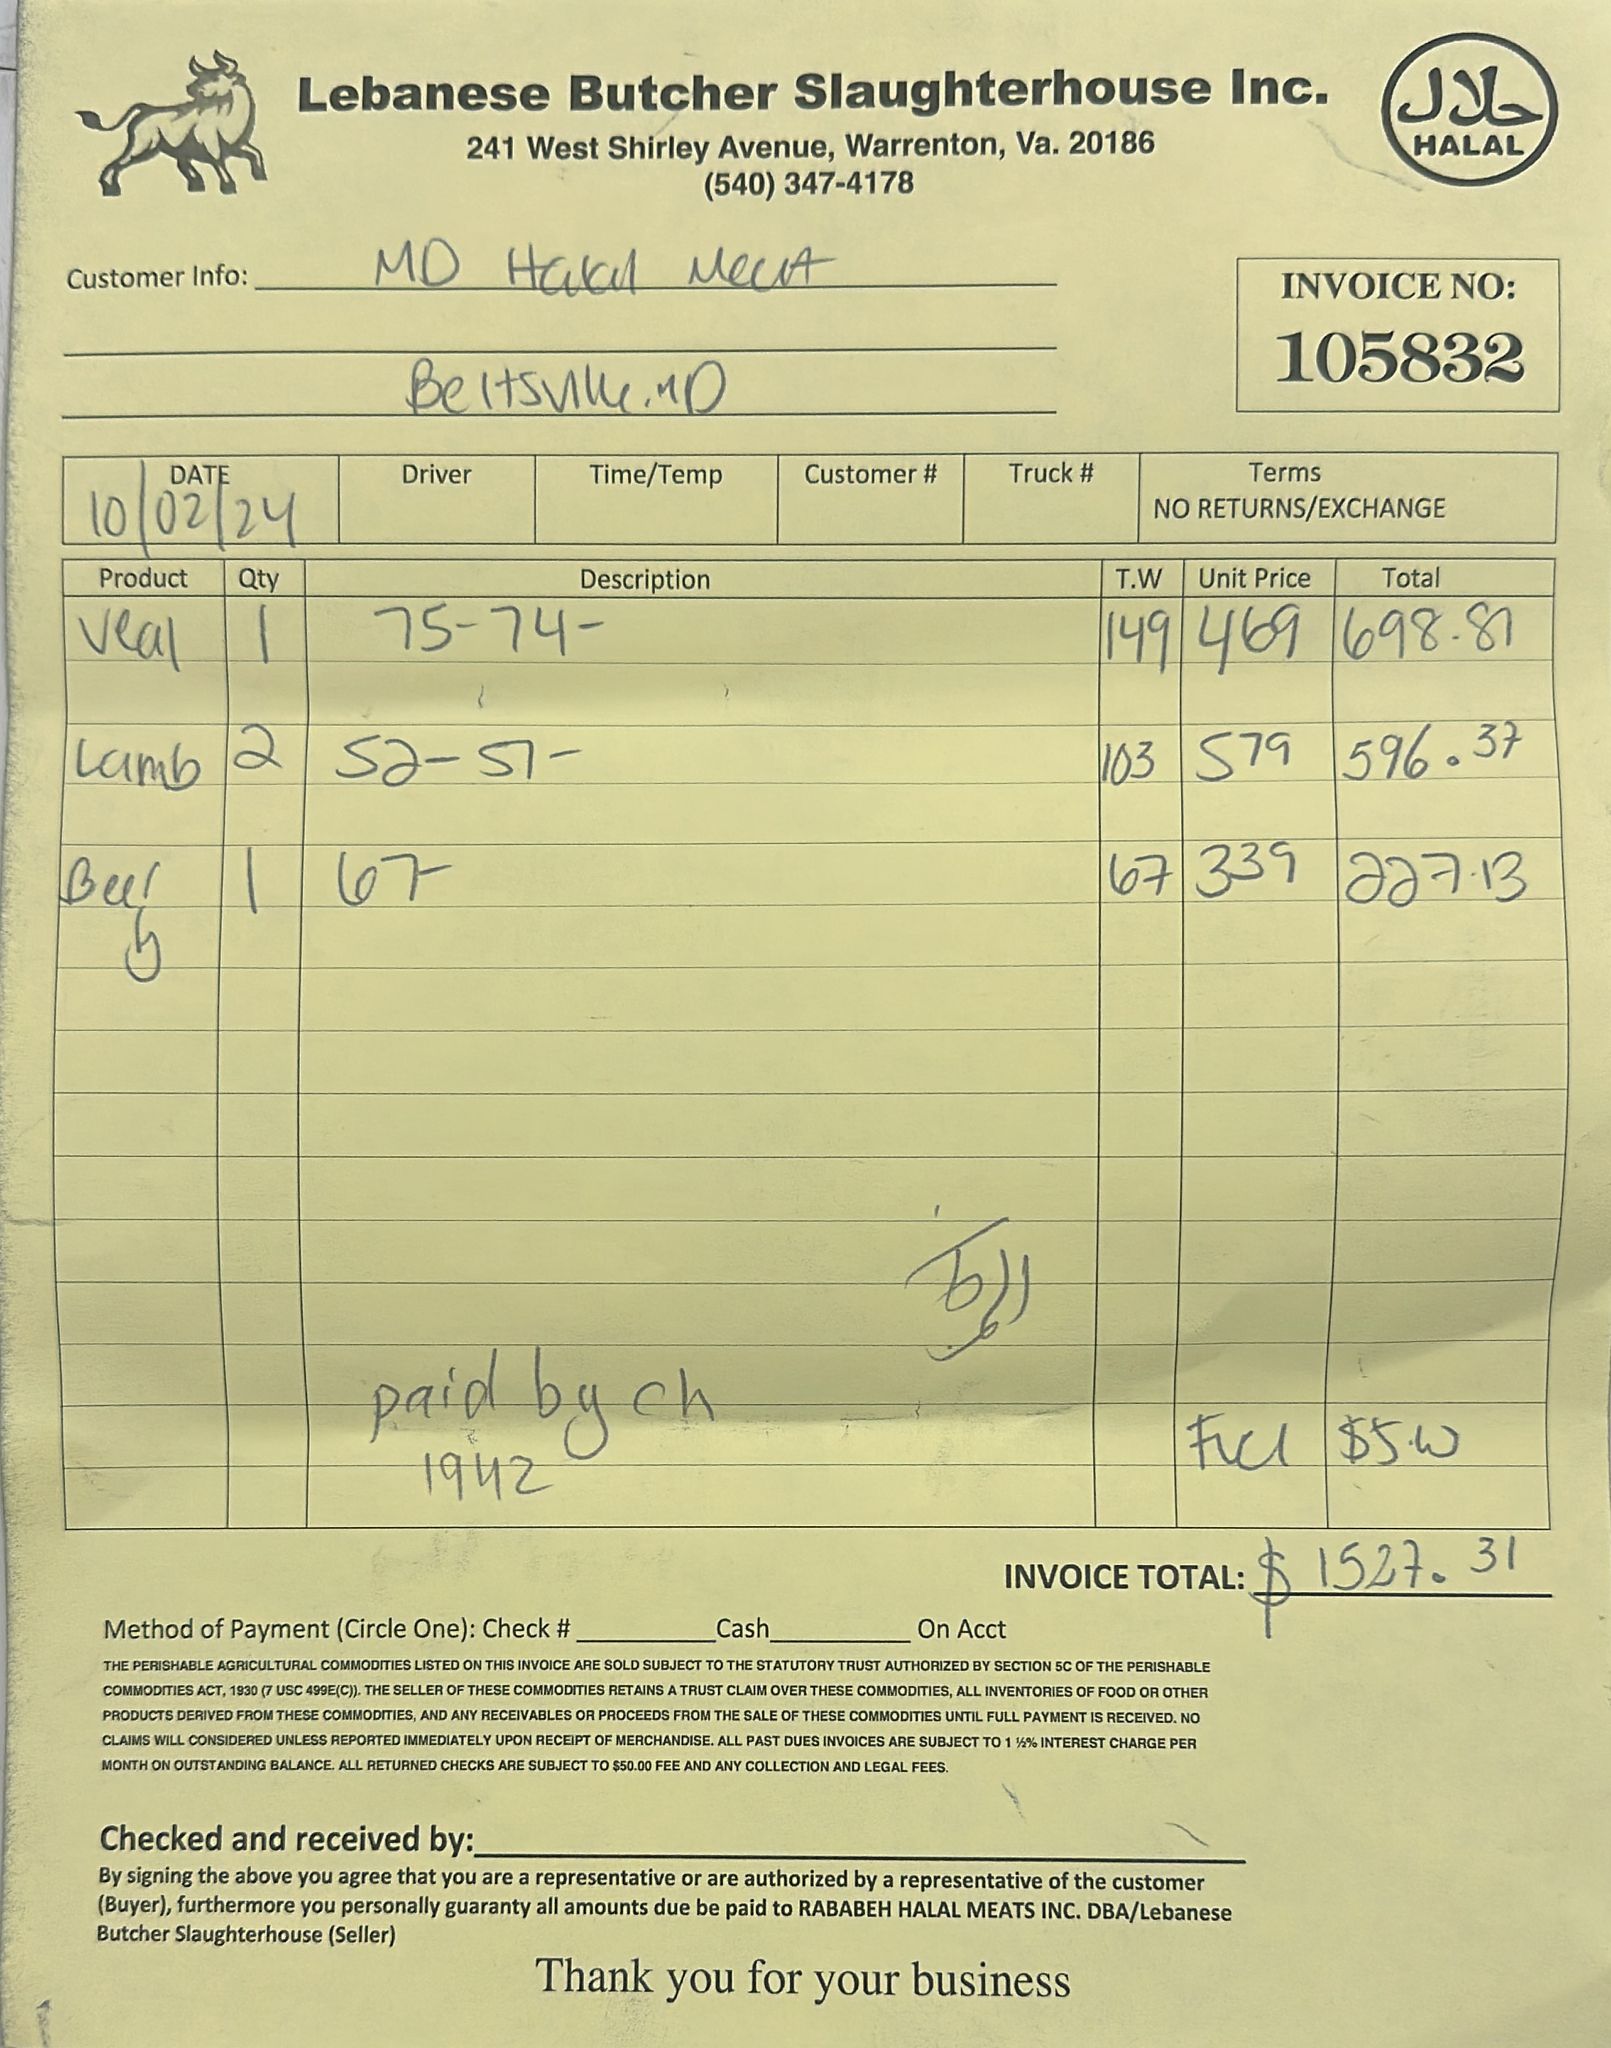 Lebanese Butcher Slaughterhouse Inc.
حلال
HALAL
241 West Shirley Avenue, Warrenton, Va. 20186
(540) 347-4178
Customer Info: MD Halal Meat
INVOICE NO:
105832
Beltsville. MD
DATE Driver Time/Temp Customer # Truck # Terms
10/02/24 NO RETURNS/EXCHANGE
Product Qty Description T.W Unit Price Total
Veal 1 75-74- 149 469 698.81
Lamb 2 52-51- 103 579 596.37
Beef 1 67- 67 339 227.13
paid by ch
1942
Fuel $5.00
INVOICE TOTAL: $ 1527.31
Method of Payment (Circle One): Check # Cash On Acct
THE PERISHABLE AGRICULTURAL COMMODITIES LISTED ON THIS INVOICE ARE SOLD SUBJECT TO THE STATUTORY TRUST AUTHORIZED BY SECTION 5C OF THE PERISHABLE
COMMODITIES ACT, 1930 (7 USC 499E(C)). THE SELLER OF THESE COMMODITIES RETAINS A TRUST CLAIM OVER THESE COMMODITIES, ALL INVENTORIES OF FOOD OR OTHER
PRODUCTS DERIVED FROM THESE COMMODITIES, AND ANY RECEIVABLES OR PROCEEDS FROM THE SALE OF THESE COMMODITIES UNTIL FULL PAYMENT IS RECEIVED. NO
CLAIMS WILL CONSIDERED UNLESS REPORTED IMMEDIATELY UPON RECEIPT OF MERCHANDISE. ALL PAST DUES INVOICES ARE SUBJECT TO 1 ½% INTEREST CHARGE PER
MONTH ON OUTSTANDING BALANCE. ALL RETURNED CHECKS ARE SUBJECT TO $50.00 FEE AND ANY COLLECTION AND LEGAL FEES.
Checked and received by:
By signing the above you agree that you are a representative or are authorized by a representative of the customer
(Buyer), furthermore you personally guaranty all amounts due be paid to RABABEH HALAL MEATS INC. DBA/Lebanese
Butcher Slaughterhouse (Seller)
Thank you for your business